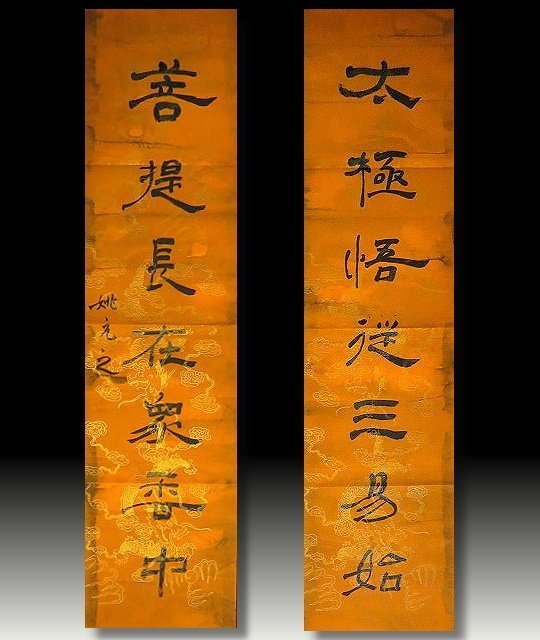 太極悟從三易始
菩提長在衆香中
姚元之